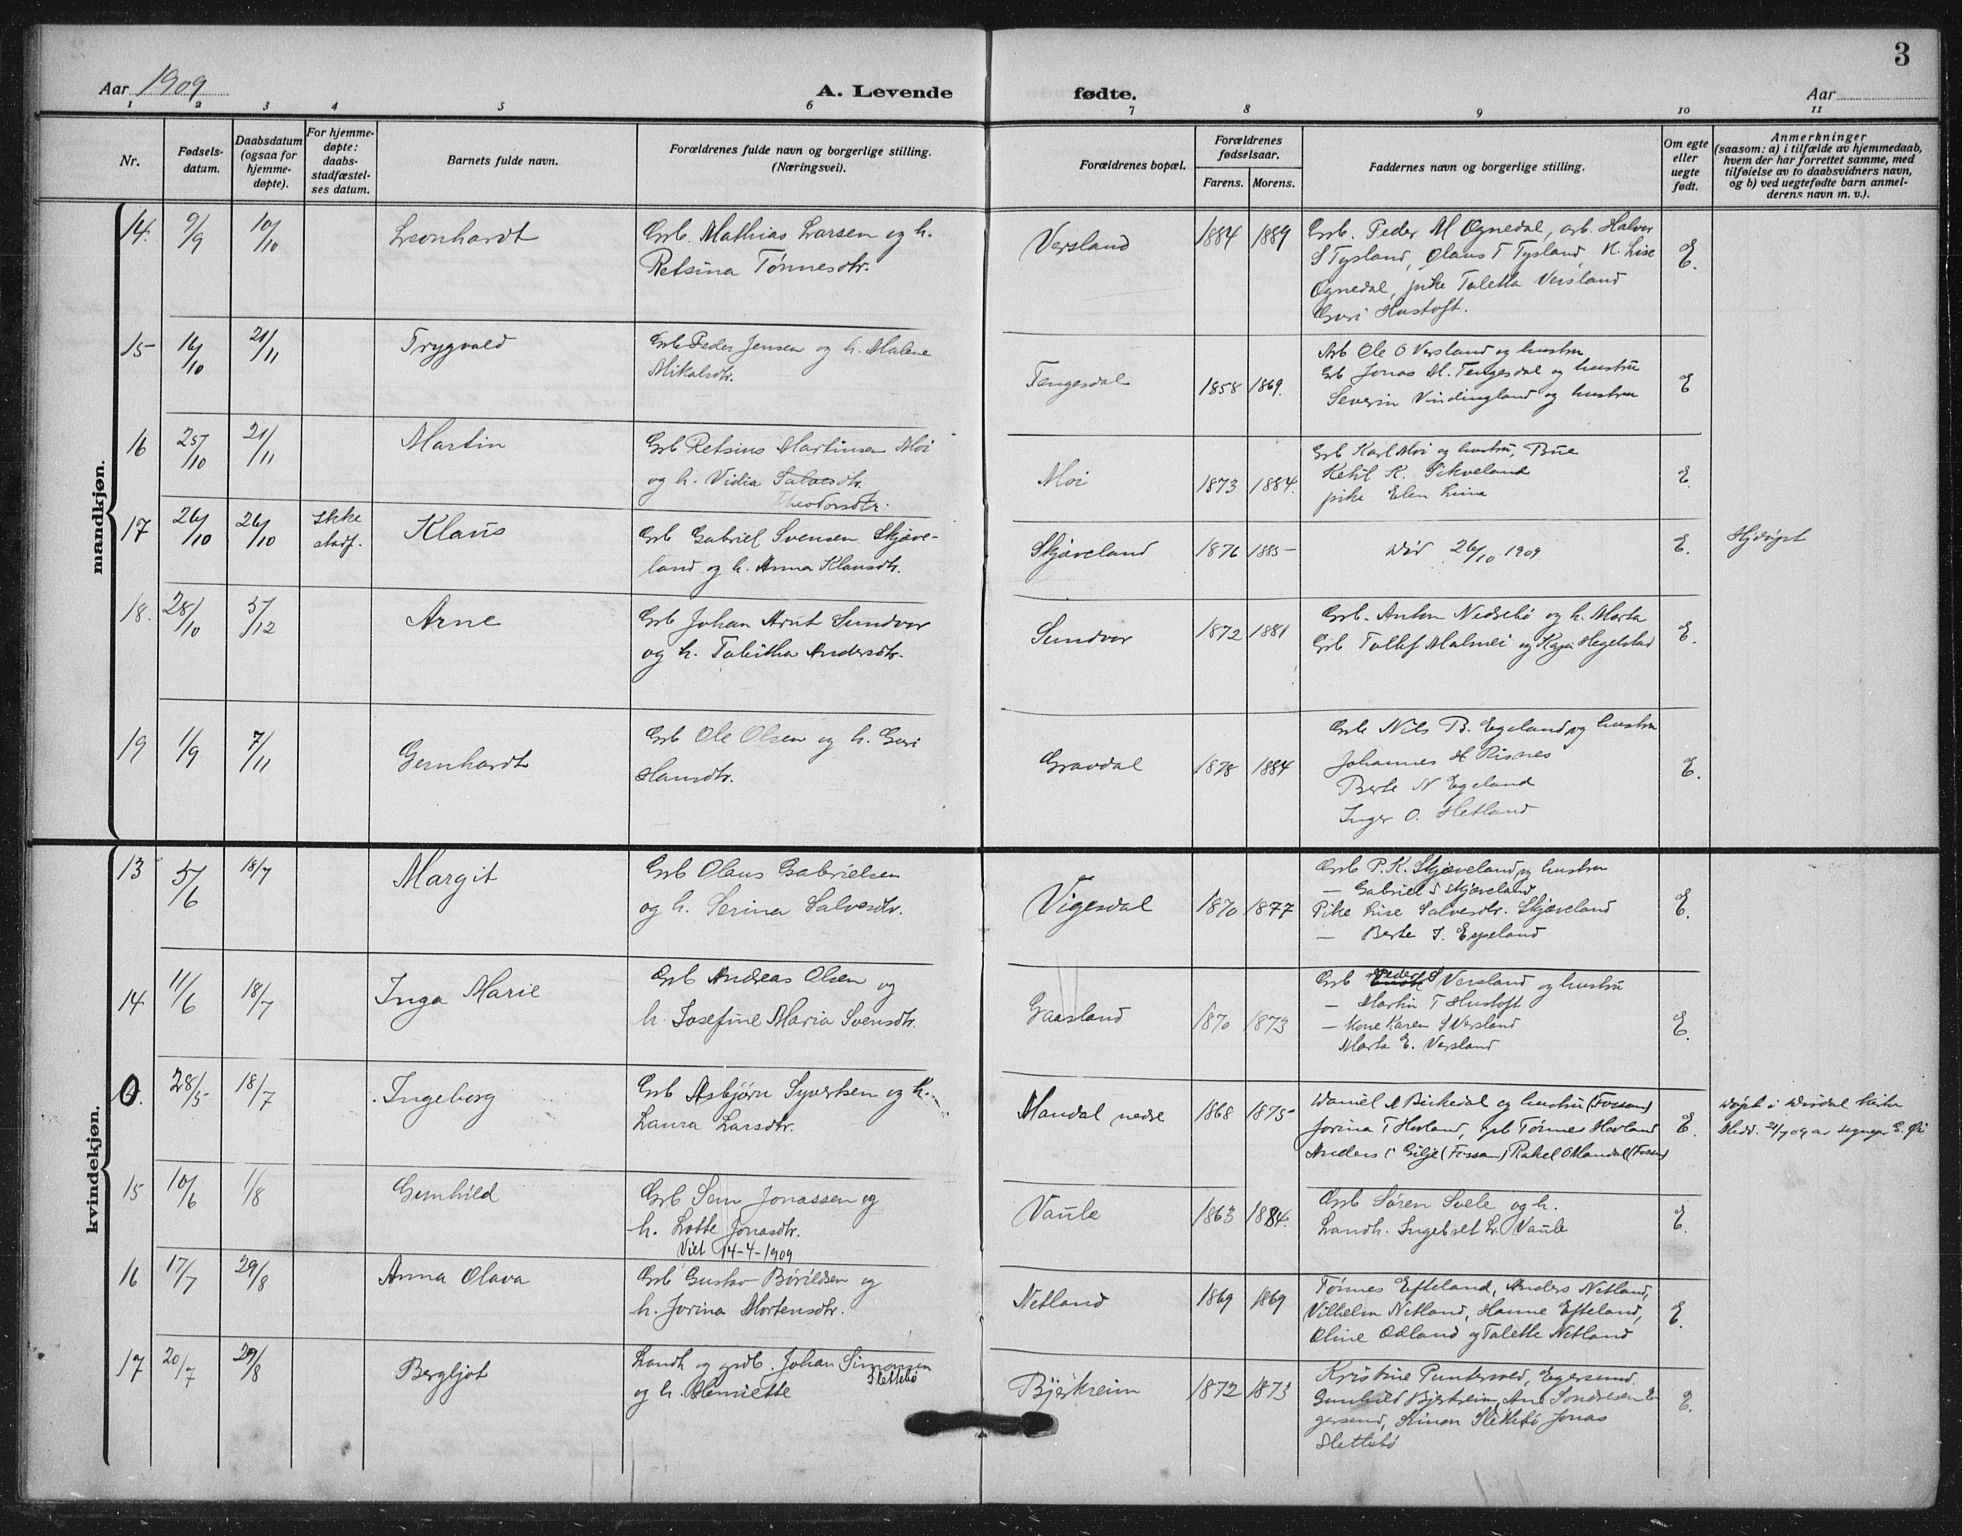 3
Aar 1909
A. Levende fødte.
Aar
1 2 3 4 5 6 7 8 9 10 11
Nr.
Fødsels-
datum.
Daabsdatum
(ogsaa for
hjemme-
døpte).
For hjemme-
døpte:
daabs-
stadfæstel-
ses datum.
Barnets fulde navn.
Forældrenes fulde navn og borgerlige stilling.
(Næringsvei).
Forældrenes bopæl.
Forældrenes
fødselsaar.
Farens. Morens.
Faddernes navn og borgerlige stilling.
Om egte
eller
uegte
født.
Anmerkninger
(saasom: a) i tilfælde av hjemmedaab,
hvem der har forrettet samme, med
tilføielse av to daabsvidners navn,
og b) ved uegtefødte barn anmel-
derens navn m. v.).
mandkjøn.
14. 9/9 10/10 Leonhardt
Grb. Mathias Larsen og h.
Retsina Tønnesdtr.
Versland 1884 1889
Grb. Peder M Ognedal, arb. Halvor
S Tysland, Olaus T Tysland, K. Lise
Ognedal, pike Taletta Versland
Guri Hustoft.
E.
15 16/10 21/11 Trygvald
Grb Peder Jensen og h. Malene
Mikalsdtr.
Tengesdal 1858 1869.
Arb Ole O Versland og hustru
Grb Jonas M. Tengesdal og hustru
Severin Vindingland og hustru
E
16 25/10 21/11 Martin
Grb Retsius Martinsen Moi
og h. Vidia Salvesdtr.
Theodorsdtr.
Moi 1873 1884.
Grb Karl Moi og hustru, Bue
Ketil K. Sikveland
pike Elen Lima
E.
17 26/10 26/10 Ikke
stadf.
Klaus
Grb Gabriel Svensen Skjæve-
land og h. Anna Klausdtr.
Skjæveland 1876 1885
Død 26/10 1909
E.
Hjdøpt
18. 28/10 5/12 Arne
Grb Johan Arnt Sundvor
og h. Tabitha Andersdtr.
Sundvor 1872 1881
Grb. Anton Nedrebø og h. Marta
Grb Tollef Malmei og Kaja Hegelstad
E.
19 1/9 7/11 Gernhardt
Grb Ole Olsen og h. Guri
Hansdtr.
Gravdal 1878 1884
Grb Nils B. Egeland og hustru
Johannes H Risnes
Berte N Egeland
Inger O. Hetland
E.
kvindekjøn.
13 5/6 18/7 Margit
Grb Olaus Gabrielsen
og h. Serina Salvesdtr.
Vigesdal 1870 1877
Grb P. K. Skjæveland og hustru
— Gabriel S Skjæveland
Pike Lise Salvesdtr. Skjæveland
— Berte J. Espeland
E.
14 11/6 18/7 Inga Marie
Grb Andreas Olsen og
h. Josefine Maria Svensdtr.
Gaasland 1870 1873
Grb Peder S Versland og hustru
— Martin T Hustoft
— Kone Karen S Versland
Marta E. Versland
E.
0. 28/5 18/7 Ingeborg
Grb Asbjørn Syvertsen og h.
Laura Larsdtr.
Mandal nedre 1868 1875
Daniel A Birkedal og hustru (Fossan)
Jorina T Hovland, grb Tønnes Hovland
Anders Gilje (Fossan) Rakel O Mandal (Fossan)
E.
Døpt i Dirdal Kirke
15 10/6 1/8 Gunhild
Grb Sem Jonassen og
h. Lotte Jonasdtr.
Viet 14-4-1909
Vaule 1863 1884.
Grb Søren Svele og h.
Landh. Ingebret L. Vaule
E.
16 17/7 29/8 Anna Olava
Grb Gustav Børildsen og
h. Jorina Mortensdtr.
Netland 1869 1869
Tønnes Efteland, Anders Netland,
Vilhelm Netland, Hanne Efteland,
Oline Odland og Talette Netland
E.
17 20/7 29/8 Bergljot
Landh og grdb. Johan Simonsen
Slettebø
og h. Henriette
Bjerkreim 1872 1873
Kristine Puntervold, Egersund.
Gunhild Bjerkreim, Ane Sondresen E-
gersund, Simon Slettebø Jonas
Slettebø
E.